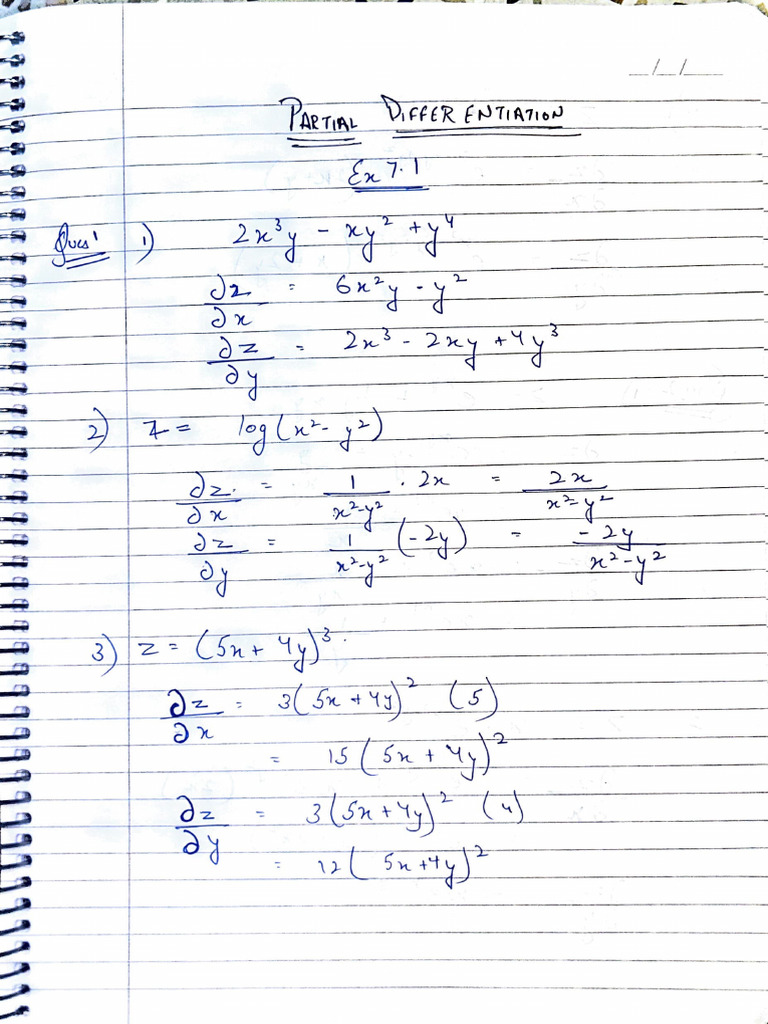 __/__/__
PARTIAL DIFFERENTIATION
Ex 7.1
Ques' 1) 2x³y - xy² + y⁴
∂z/∂x = 6x²y - y²
∂z/∂y = 2x³ - 2xy + 4y³
2) z = log(x² - y²)
∂z/∂x = 1/(x²-y²) . 2x = 2x/(x²-y²)
∂z/∂y = 1/(x²-y²) (-2y) = -2y/(x²-y²)
3) z = (5x + 4y)³.
∂z/∂x = 3(5x + 4y)² (5)
= 15(5x + 4y)²
∂z/∂y = 3(5x + 4y)² (4)
= 12(5x + 4y)²